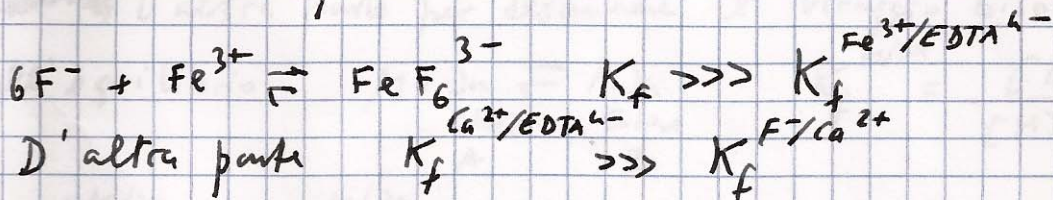 6F⁻ + Fe³⁺ ⇌ FeF₆³⁻ K_f >>> K_f^Fe³⁺/EDTA⁴⁻
D'altra parte K_f^Ca²⁺/EDTA⁴⁻ >>> K_f^F⁻/Ca²⁺